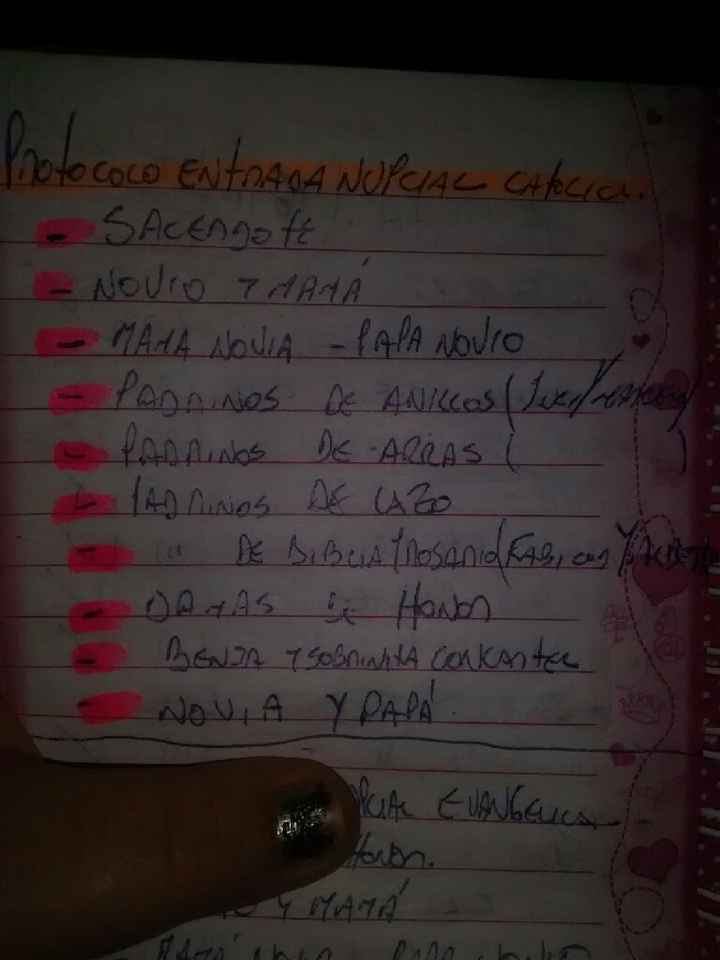 Protocolo ENTRADA NUPCIAL CATOLICA.
- SACERDOTE
- NOVIO Y MAMÁ
- MAMA NOVIA - PAPA NOVIO
- PADRINOS DE ANILLOS (
- PADRINOS DE ARRAS ( )
- PADRINOS DE LAZO
- " DE BIBLIA/ROSARIO (
- DAMAS DE HONOR
- BENJA Y SOBRINITA
- NOVIA Y PAPÁ.
PCIAL EVANGELICA
HONOR.
Y MAMÁ
- MAMÁ